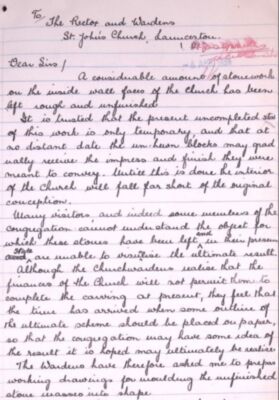 To
The Rector and Wardens
St. John's Church, Launceston.
Dear Sirs/
A considerable amount of stonework
on the inside wall faces of the Church has been
left rough and unfinished
It is trusted that the present uncompleted state
of this work is only temporary, and that at
no distant date the un-hewn blocks may grad
ually receive the impress and finish they were
meant to convey. Until this is done the interior
of the Church will fall far short of the original
conception.
Many visitors, and indeed some members of the
congregation cannot understand the object for
which these stones have been left in their present
state and are unable to visualise the ultimate result.
Although the Churchwardens realise that the
finances of the Church will not permit them to
complete the carving at present, they feel that
the time has arrived when some outline of
the ultimate scheme should be placed on paper,
so that the congregation may have some idea of
the result it is hoped may ultimately be realised
The Wardens have therefore asked me to prepare
working drawings for moulding the unfinished
stone masses into shape